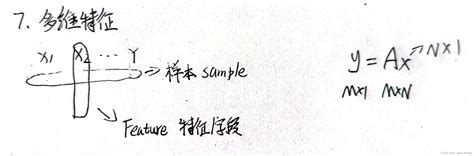 7. 多维特征
X1 X2 ... Y
⇒ 样本 sample
Feature 特征字段
y = Ax → N×1
M×1 M×N